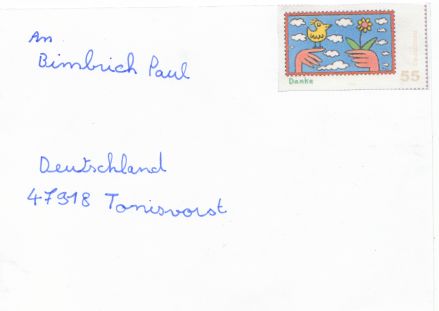 An
Bimbrich Paul
Danke
55
Deutschland
47918 Tonisvorst